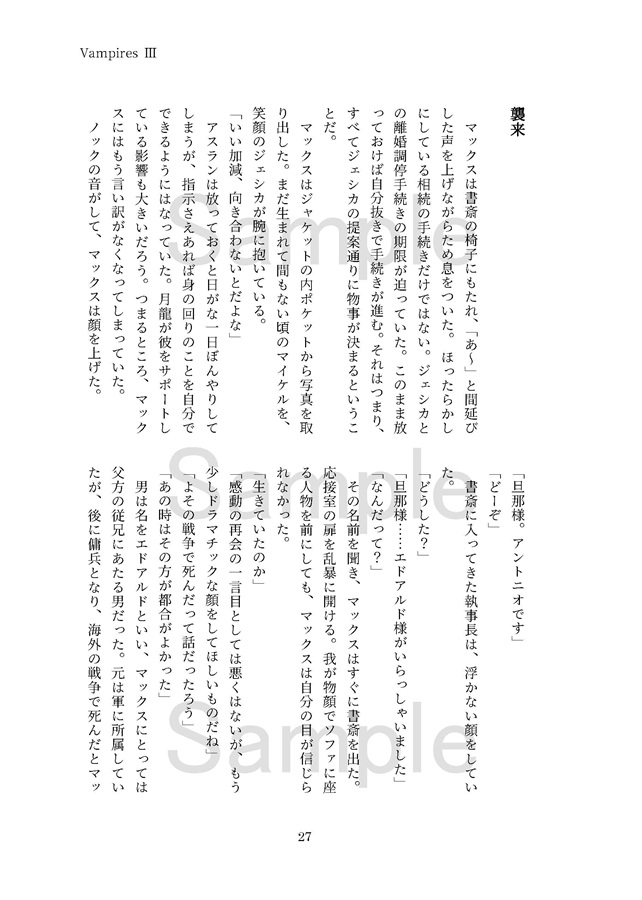 Vampires Ⅲ
襲来
　マックスは書斎の椅子にもたれ、「あ～」と間延び
した声を上げながらため息をついた。ほったらかし
にしている相続の手続きだけではない。ジェシカと
の離婚調停手続きの期限が迫っていた。このまま放
っておけば自分抜きで手続きが進む。それはつまり、
すべてジェシカの提案通りに物事が決まるというこ
とだ。
　マックスはジャケットの内ポケットから写真を取
り出した。まだ生まれて間もない頃のマイケルを、
笑顔のジェシカが腕に抱いている。
「いい加減、向き合わないとだよな」
　アスランは放っておくと日がな一日ぼんやりして
しまうが、指示さえあれば身の回りのことを自分で
できるようにはなっていた。月龍が彼をサポートし
ている影響も大きいだろう。つまるところ、マック
スにはもう言い訳がなくなってしまっていた。
　ノックの音がして、マックスは顔を上げた。
「旦那様。アントニオです」
「どーぞ」
　書斎に入ってきた執事長は、浮かない顔をしてい
た。
「どうした？」
「旦那様……エドアルド様がいらっしゃいました」
「なんだって？」
　その名前を聞き、マックスはすぐに書斎を出た。
応接室の扉を乱暴に開ける。我が物顔でソファに座
る人物を前にしても、マックスは自分の目が信じら
れなかった。
「生きていたのか」
「感動の再会の一言目としては悪くはないが、もう
少しドラマチックな顔をしてほしいものだね」
「よその戦争で死んだって話だったろう」
「あの時はその方が都合がよかった」
　男は名をエドアルドといい、マックスにとっては
父方の従兄にあたる男だった。元は軍に所属してい
たが、後に傭兵となり、海外の戦争で死んだとマッ
27
Sample
Sample
Sample